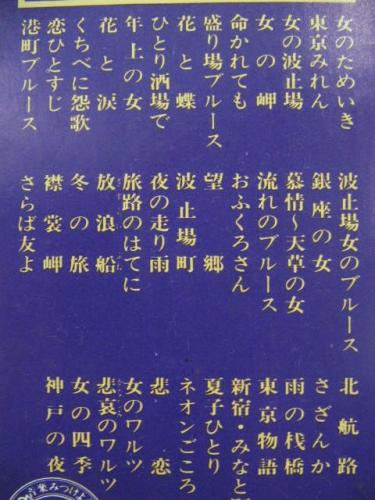 女のためいき
東京みれん
女の波止場
女の岬
命かれても
盛り場ブルース
花と蝶
ひとり酒場で
年上の女
花と涙
くちべに怨歌
恋ひとすじ
港町ブルース
波止場女のブルース
銀座の女
慕情～天草の女
流れのブルース
おふくろさん
望郷
波止場町
夜の走り雨
旅路のはてに
放浪船
冬の旅
襟裳岬
さらば友よ
北航路
さざんか
雨の桟橋
東京物語
新宿・みなと
夏子ひとり
ネオンごころ
悲恋
女のワルツ
悲哀のワルツ
女の四季
神戸の夜